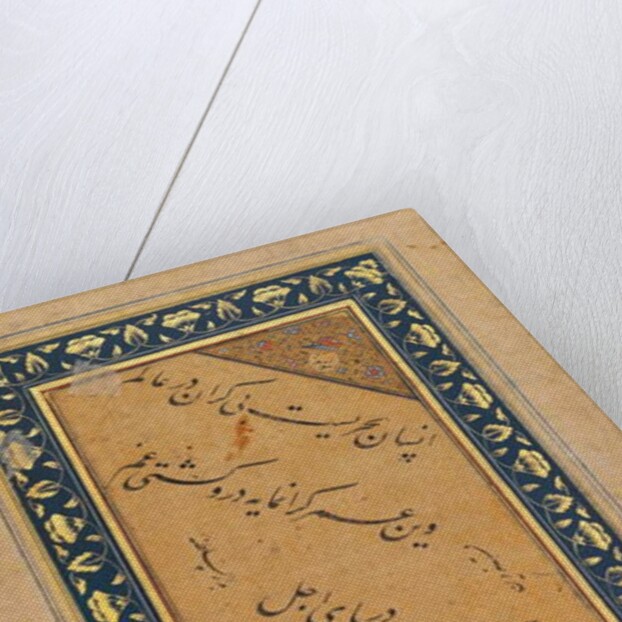 انسان بحریست بی کران در عالم
وین عمر کرانمایه درو کشتی غم
دریای اجل